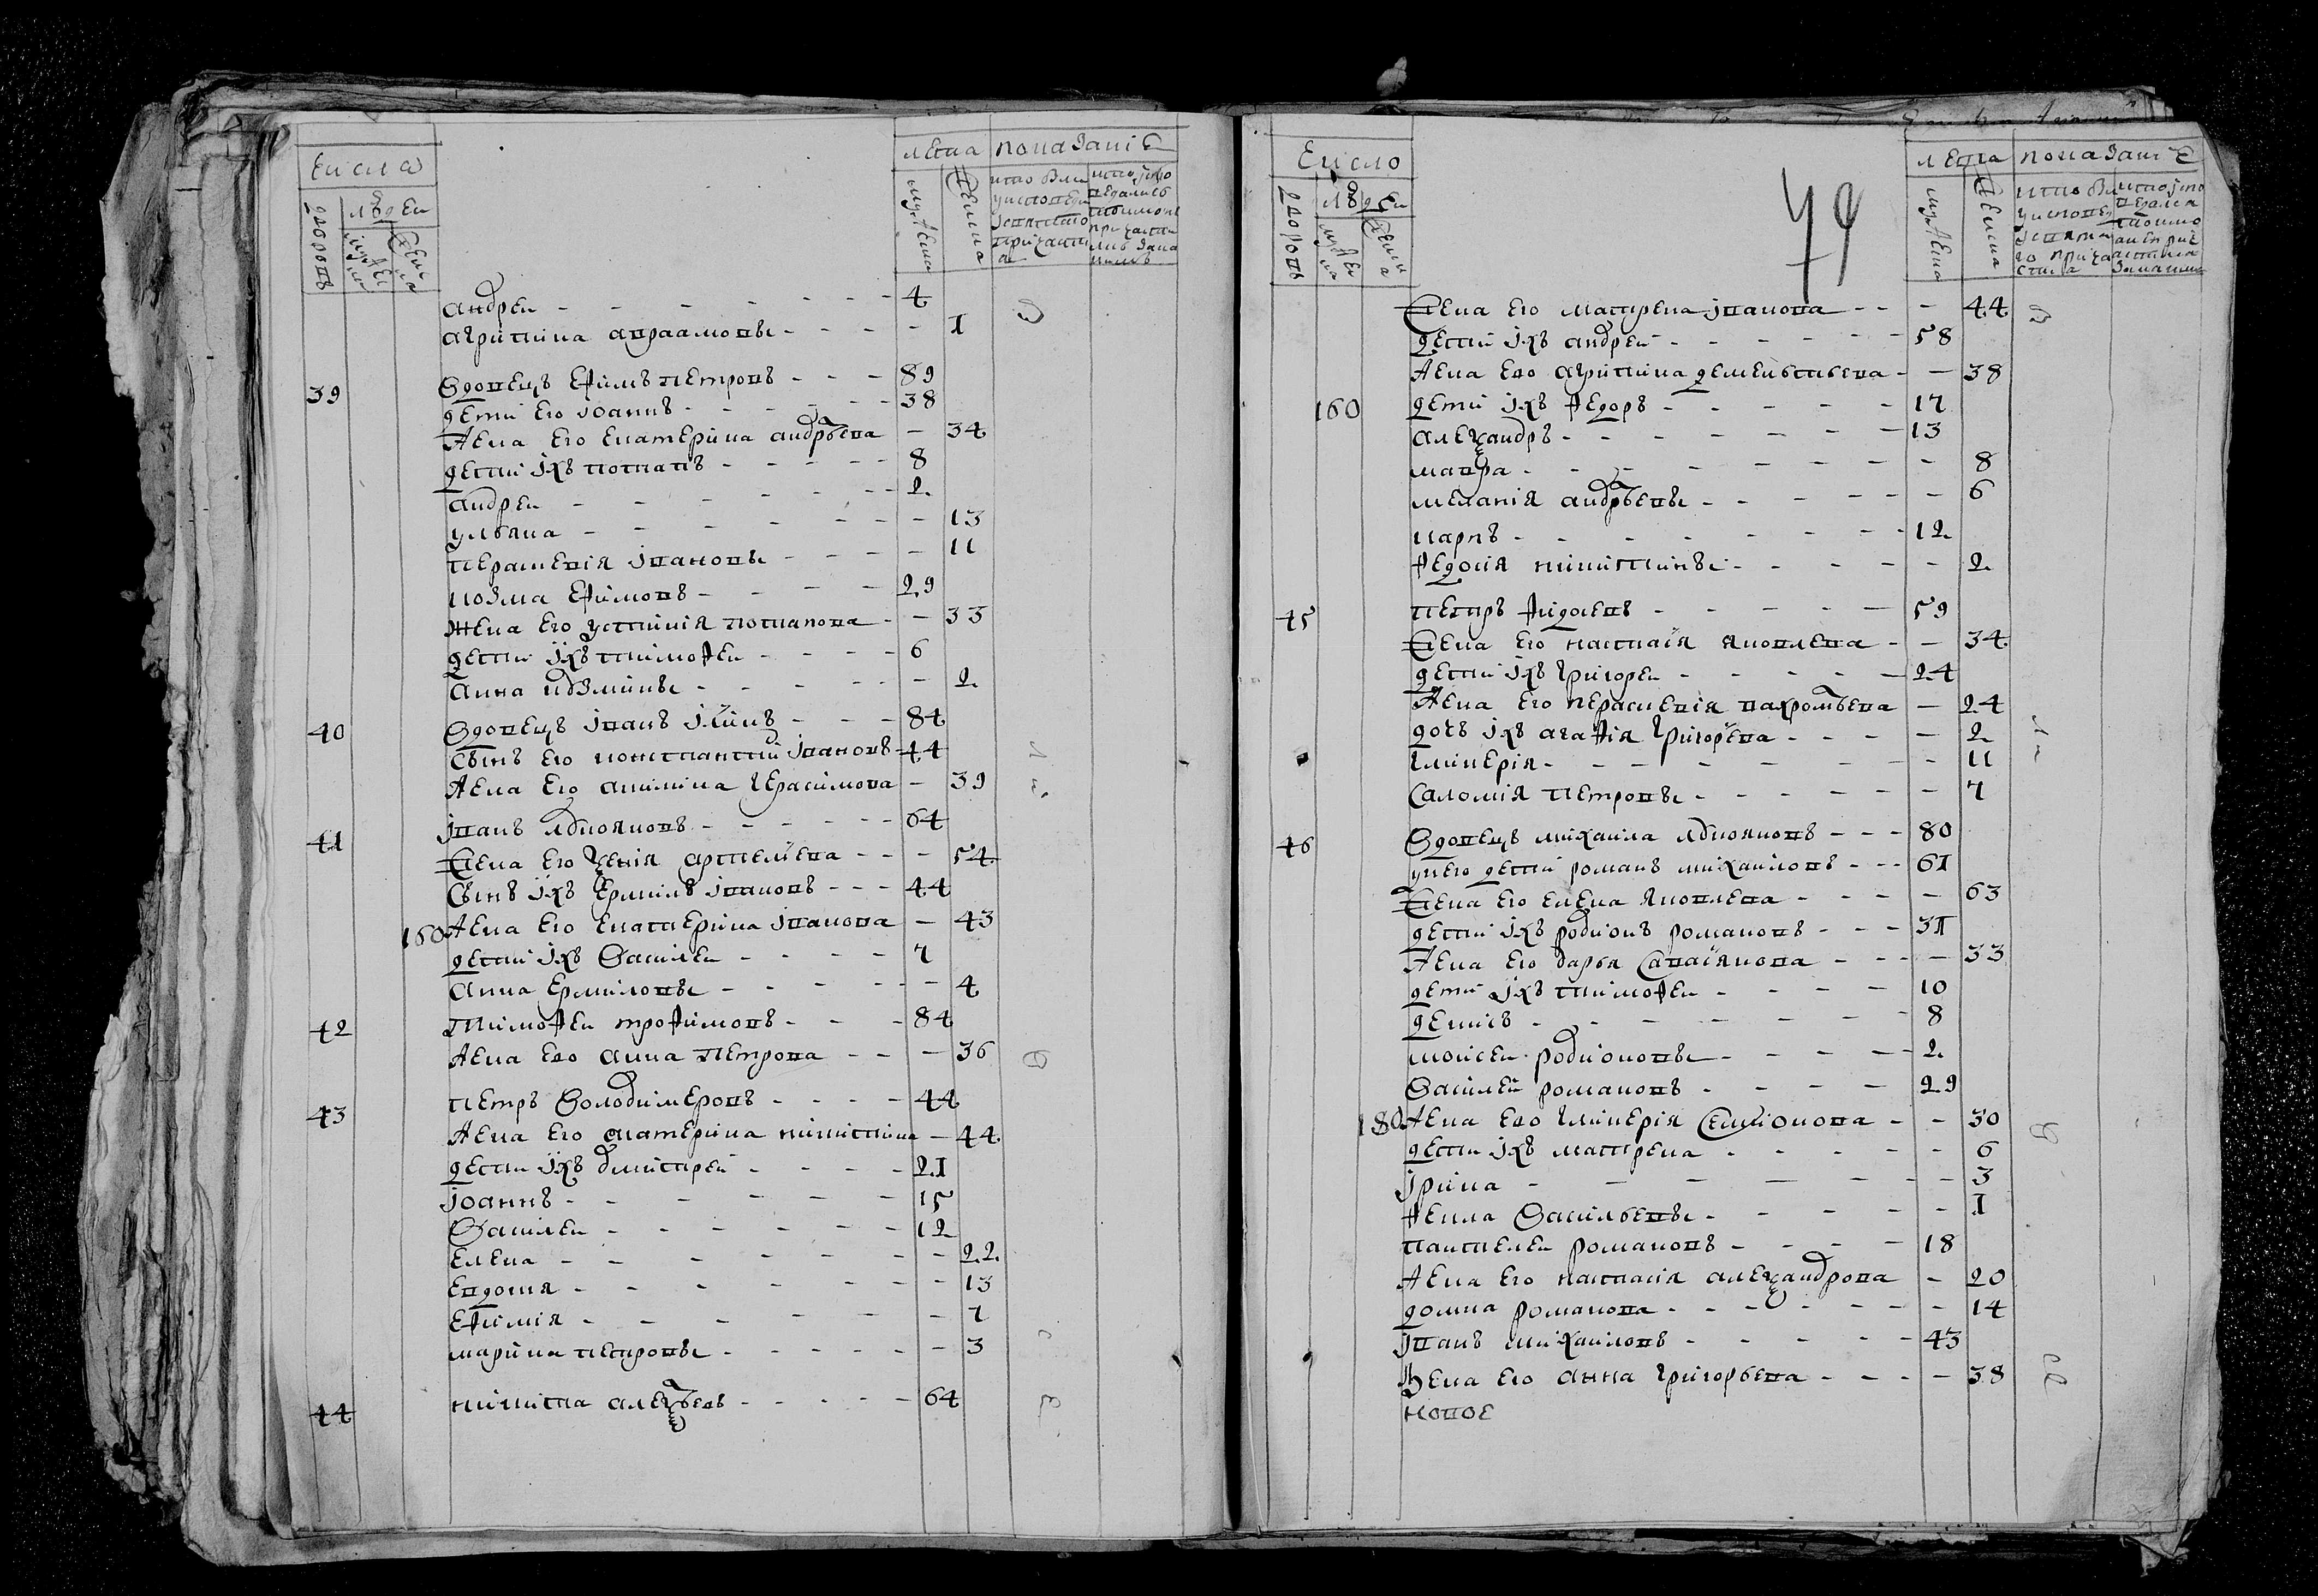 Число
лета показание
дворовъ
людей
мужеска
женска
мужеска
женска
андреи - - - 4
агрипина авраамовы - - - 1
39 вдовецъ ефимъ петровъ - - - 89
дети его иоаннъ - - - 38
жена его екатерина андрѣева - 34
дети ихъ потапъ - - - 8
андреи - - - 2
ульяна - - - 13
перасковия ивановы - - - 11
козма ефимовъ - - - 29
жена его устиния потапова - - 33
дети ихъ тимофеи - - - 6
анна козмины - - - 2
40 вдовецъ иванъ илiинъ - - - 84
сынъ его константин ивановъ - 44
жена его акилина герасимова - 39
41 иванъ лукояновъ - - - 64
жена его ксения артемиева - - - 54
сынъ ихъ ермилъ ивановъ - - - 44
160 жена его екатерина иванова - 43
дети ихъ василеи - - - 7
анна ермиловы - - - 4
42 тимофеи трофимовъ - - - 84
жена ево анна петрова - - - 36
43 петръ володимеровъ - - - 44
жена его екатерина никитина - 44
дети ихъ дмитреи - - - 21
иоаннъ - - - 15
василеи - - - 12
елена - - - 22
евдокия - - - 13
ефимия - - - 7
марина петровы - - - 3
44 никита алексѣевъ - - - 64
49
Число
лета показание
дворовъ
людей
мужеска
женска
мужеска
женска
жена его матрена иванова - - - 44
дети ихъ андреи - - - 58
жена ево агрипина дементьева - - 38
160 дети ихъ федоръ - - - 17
александръ - - - 13
мавра - - - 8
мелания андрѣевы - - - 6
карпъ - - - 12
федосия никитины - - - 2
45 петръ фидосевъ - - - 59
жена его настасiя яковлева - - 34
дети ихъ григореи - - - 24
жена его перасковия вахромѣева - 24
дочь ихъ агафия григорева - - - 2
гликерия - - - 11
саломия петровы - - - 7
46 вдовецъ михаила лукояновъ - - - 80
у него дети романъ михаиловъ - - - 61
жена его елена яковлева - - - 63
дети ихъ родионъ романовъ - - - 31
жена его дарья савасiянова - - - 33
дети ихъ тимофеи - - - 10
денисъ - - - 8
моисеи родионовы - - - 2
василеи романовъ - - - 29
180 жена ево гликерия семионова - - 30
дети ихъ матрена - - - 6
ирина - - - 3
фекла васильевы - - - 1
пантелеи романовъ - - - 18
жена его настасия александрова - 20
домна романова - - - 14
иванъ михаиловъ - - - 43
жена его анна григорьева - - - 38
новое